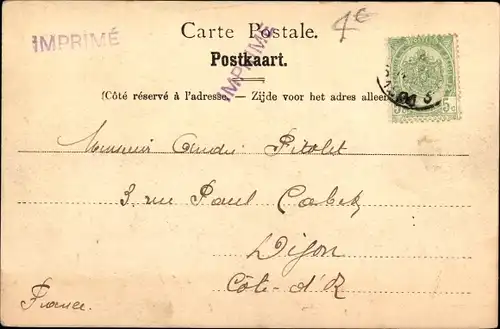 Carte Postale.
4€
IMPRIMÉ
IMPRIMÉ
Postkaart.
(Côté réservé à l'adresse. — Zijde voor het adres alleen
5c 5c
Monsieur André Pitolet
3, rue Paul Cabet
Dijon
Côte-d'Or
France.